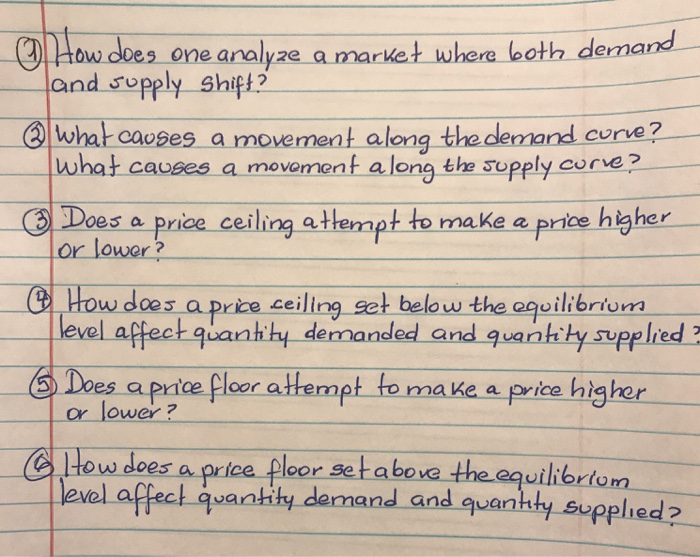 ① How does one analyze a market where both demand
and supply shift?
② What causes a movement along the demand curve?
What causes a movement along the supply curve?
③ Does a price ceiling attempt to make a price higher
or lower?
④ How does a price ceiling set below the equilibrium
level affect quantity demanded and quantity supplied?
⑤ Does a price floor attempt to make a price higher
or lower?
⑥ How does a price floor set above the equilibrium
level affect quantity demand and quantity supplied?